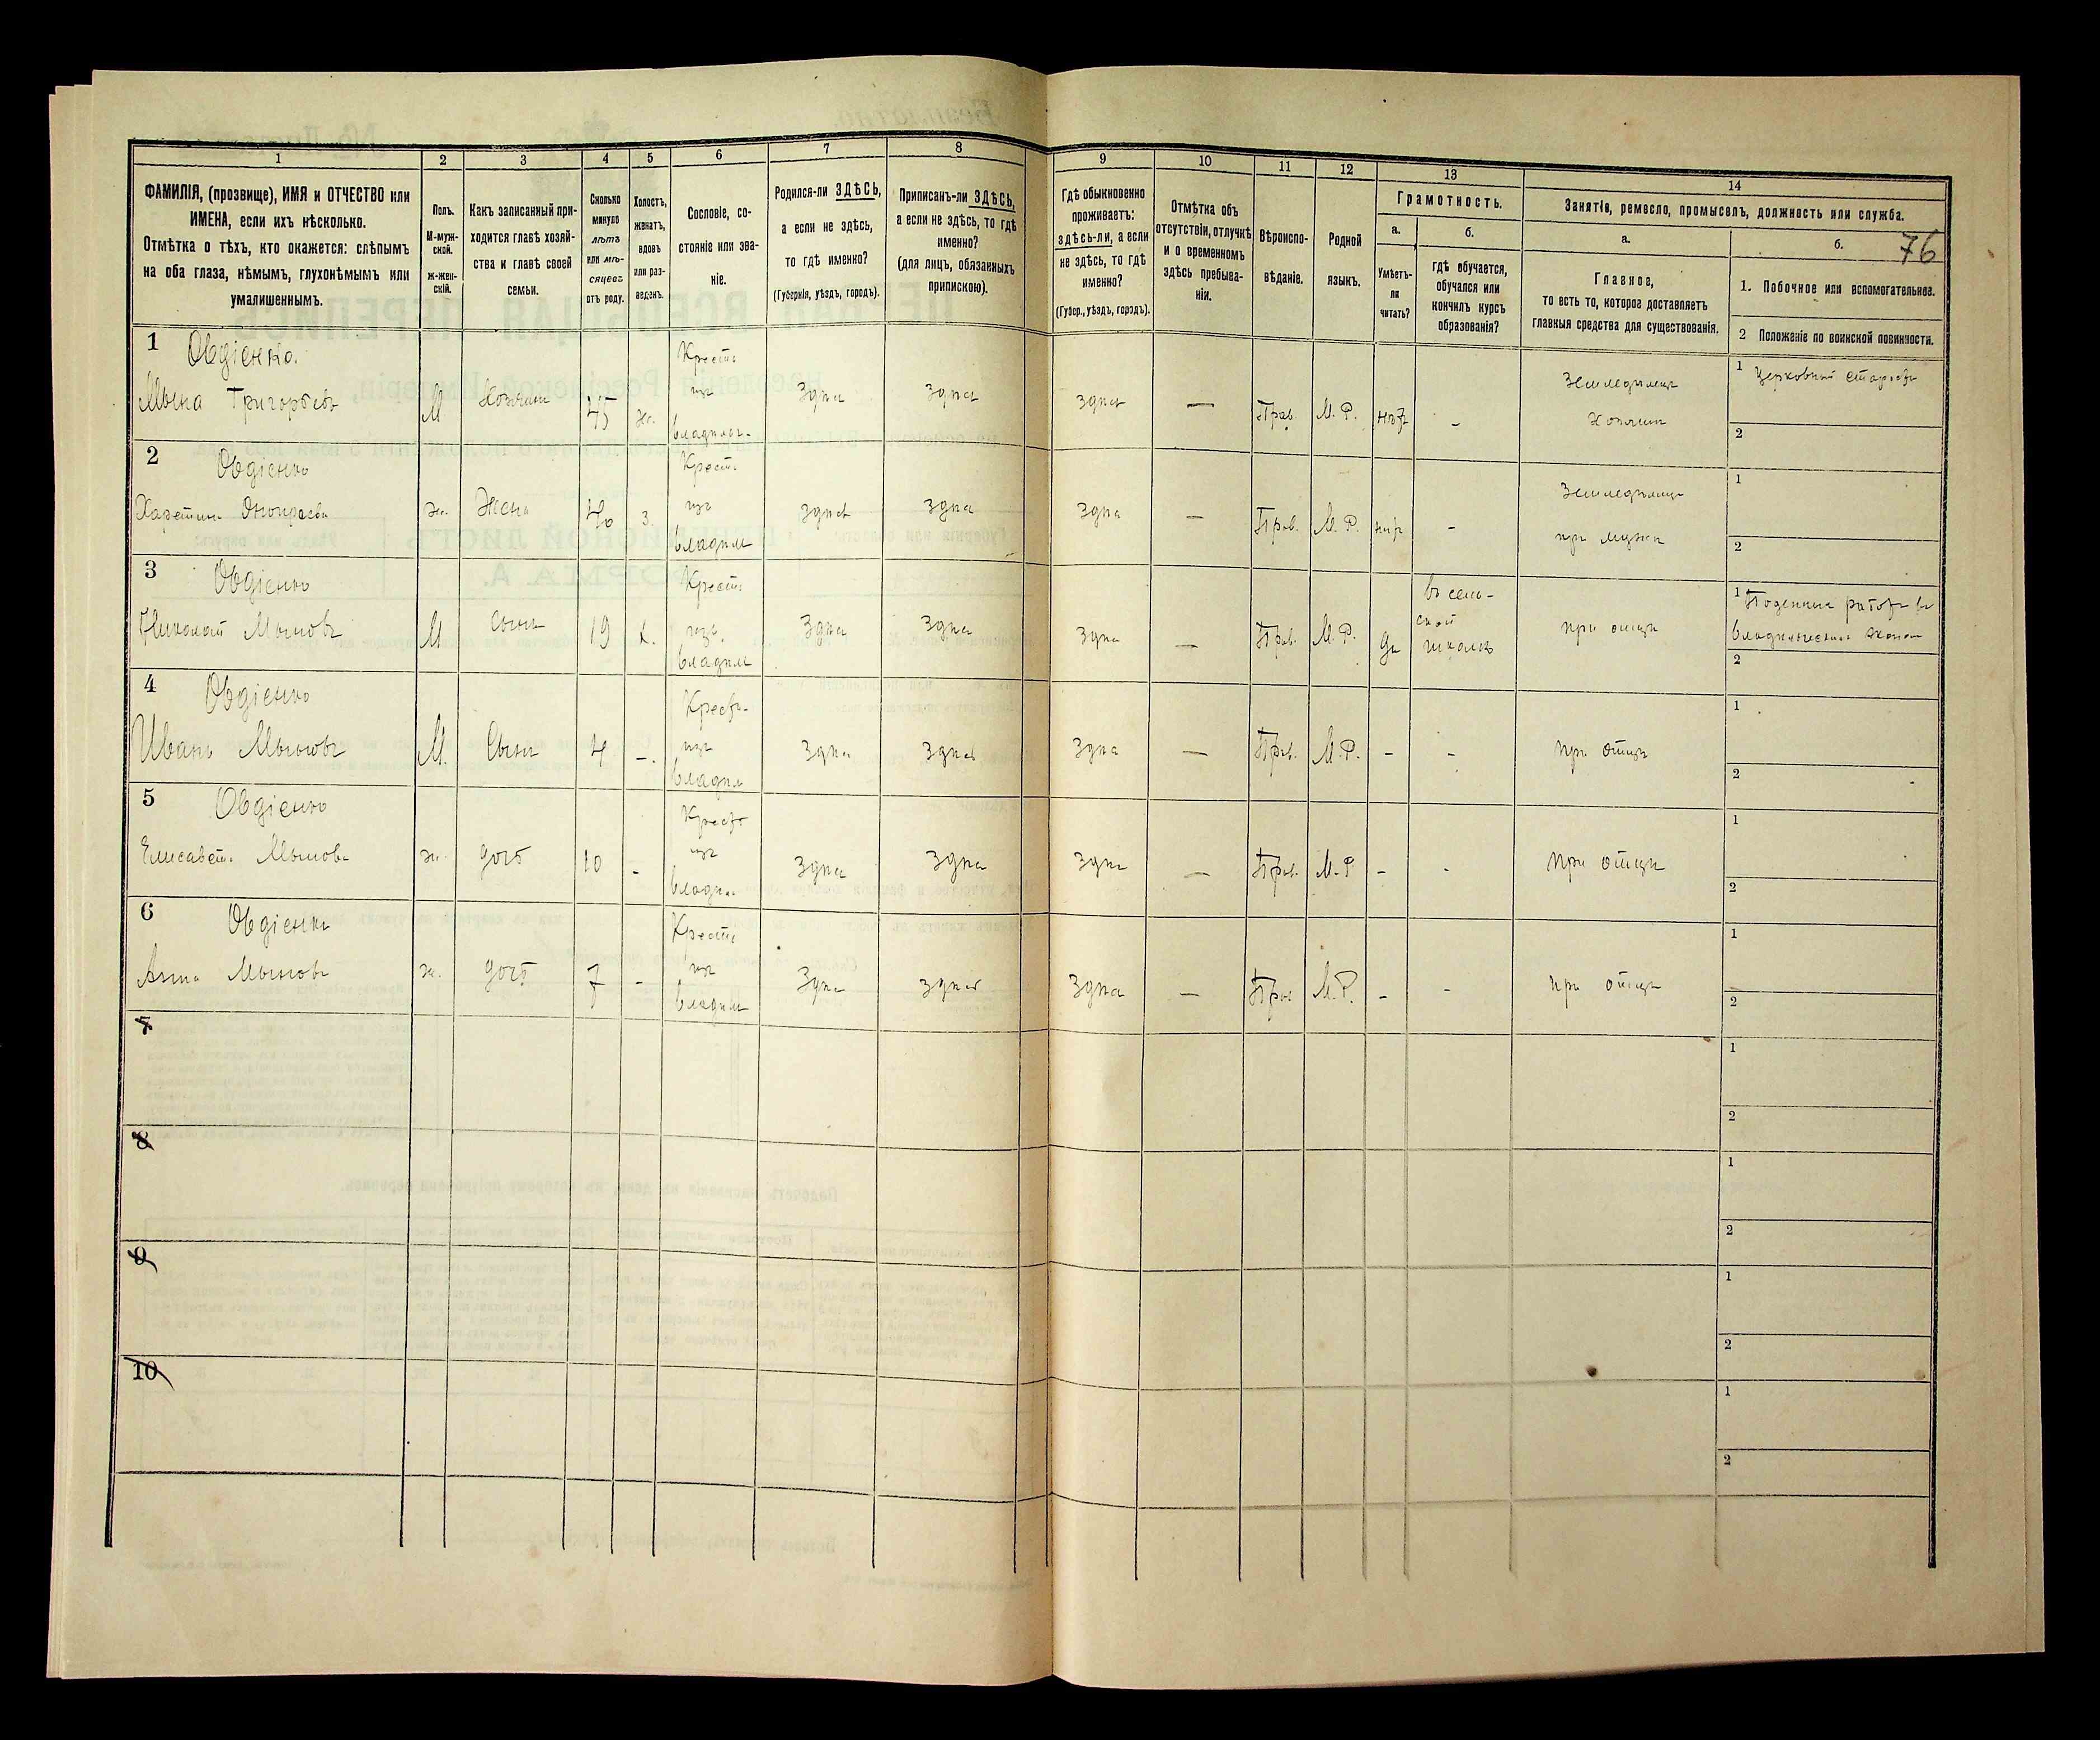 76
1
2
3
4
5
6
7
8
9
10
11
12
13
14
ФАМИЛІЯ, (прозвище), ИМЯ и ОТЧЕСТВО или
ИМЕНА, если ихъ нѣсколько.
Отмѣтка о тѣхъ, кто окажется: слѣпымъ
на оба глаза, нѣмымъ, глухонѣмымъ или
умалишеннымъ.
Полъ.
М-муж-
ской.
ж-жен-
скій.
Какъ записанный при-
ходится главѣ хозяй-
ства и главѣ своей
семьи.
Сколько
минуло
лѣтъ
или мѣ-
сяцевъ
отъ роду.
Холостъ,
женатъ,
вдовъ
или раз-
веденъ.
Сословіе, со-
стояніе или зва-
ніе.
Родился-ли ЗДѢСЬ,
а если не здѣсь,
то гдѣ именно?
(Губернія, уѣздъ, городъ).
Приписанъ-ли ЗДѢСЬ,
а если не здѣсь, то гдѣ
именно?
(для лицъ, обязанныхъ
припискою).
Гдѣ обыкновенно
проживаетъ:
здѣсь-ли, а если
не здѣсь, то гдѣ
именно?
(Губер., уѣздъ, городъ).
Отмѣтка объ
отсутствіи, отлучкѣ
и о временномъ
здѣсь пребыва-
ніи.
Вѣроиспо-
вѣданіе.
Родной
языкъ.
Грамотность.
а.
Умѣетъ-
ли
читать?
б.
гдѣ обучается,
обучался или
кончилъ курсъ
образованія?
Занятіе, ремесло, промыселъ, должность или служба.
а.
Главное,
то есть то, которое доставляетъ
главныя средства для существованія.
б.
1. Побочное или вспомогательное.
2 Положеніе по воинской повинности.
1 Овдіенко.
Григорьевъ М 45 ж.
Крест.
изъ
владѣльч.
здѣсь здѣсь здѣсь — Прав. М. Р. нѣт -
Земледѣлец
Хозяин
1 Церковный староста
2
2 Овдіенко
ж. Жена 40 з.
Крест.
изъ
владѣл
здѣсь здѣсь здѣсь — Прав. М. Р. нѣт -
Земледѣлец
при мужѣ
1
2
3 Овдіенко
Николай М Сынъ 19 х.
Крест.
изъ
владѣл
здѣсь здѣсь здѣсь — Прав. М. Р. да
въ сель-
ской
школѣ
при отцѣ
1 Поденныя работы въ
2
4 Овдіенко
Иванъ М. Сынъ 4 -.
Крест.
изъ
владѣл
здѣсь здѣсь здѣсь — Прав. М. Р. - -
при отцѣ
1
2
5 Овдіенко
Елисавета ж. дочь 10 -
Крест
изъ
владѣл.
здѣсь здѣсь здѣсь — Прав. М. Р - -
при отцѣ
1
2
6 Овдіенко
Анна ж. дочь 7 -
Крест.
изъ
владѣл
здѣсь здѣсь здѣсь — Прав М. Р. - -
при отцѣ
1
2
7
1
2
8
1
2
9
1
2
10
1
2